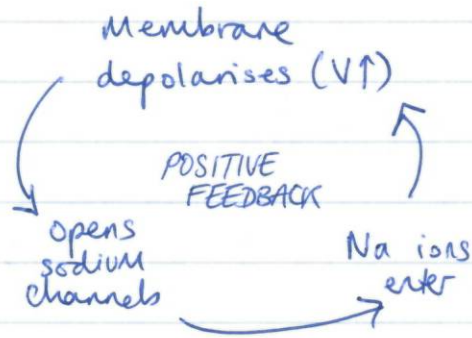 Membrane
depolarises (V↑)
POSITIVE
FEEDBACK
opens
sodium
channels
Na ions
enter